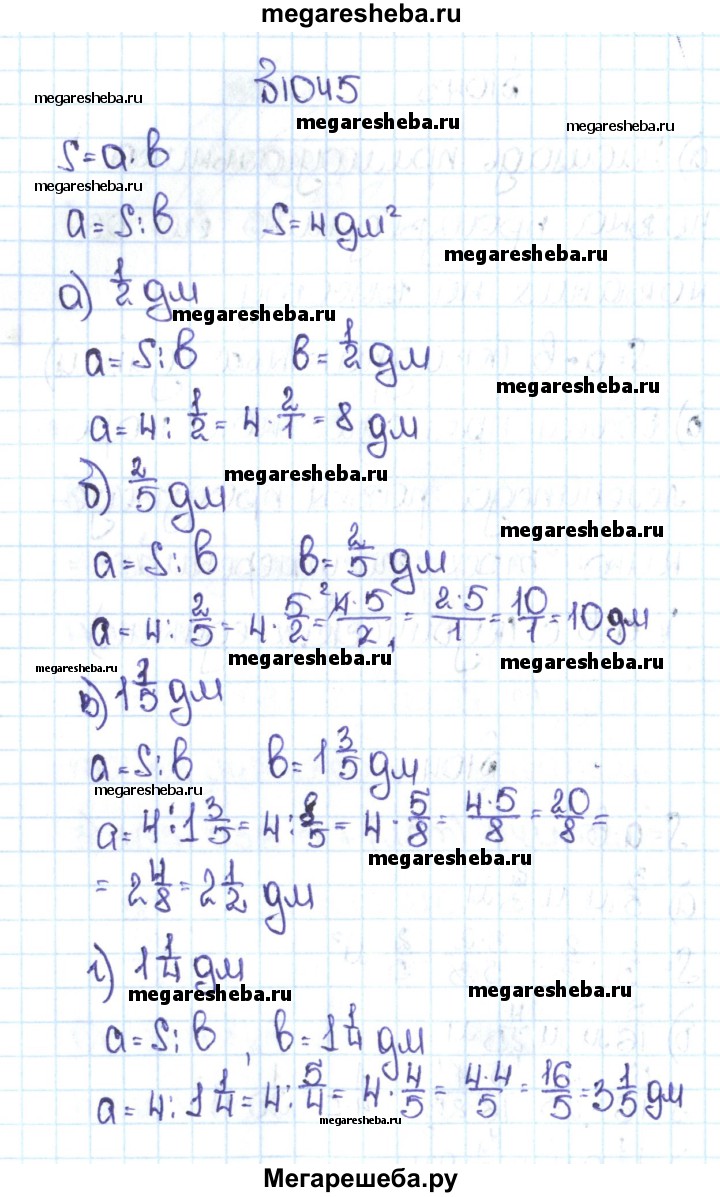 megaresheba.ru
№1045
megaresheba.ru
megaresheba.ru
megaresheba.ru
S=a·b
megaresheba.ru
a=S:b S=4дм²
megaresheba.ru
а) 1/2 дм
megaresheba.ru
a=S:b b=1/2 дм
megaresheba.ru
a=4:1/2=4·2/1=8 дм
б) 2/5 дм
megaresheba.ru
megaresheba.ru
a=S:b b=2/5 дм
a=4:2/5=4·5/2=4·5/2=2·5/1=10/1=10дм
megaresheba.ru
megaresheba.ru
megaresheba.ru
в) 1 3/5 дм
a=S:b b=1 3/5 дм
megaresheba.ru
a=4:1 3/5=4:8/5=4·5/8=4·5/8=20/8=
megaresheba.ru
=2 4/8=2 1/2 дм
г) 1 1/4 дм
megaresheba.ru
megaresheba.ru
a=S:b, b=1 1/4 дм
a=4:1 1/4=4:5/4=4·4/5=4·4/5=16/5=3 1/5 дм
megaresheba.ru
Мегарешеба.ру